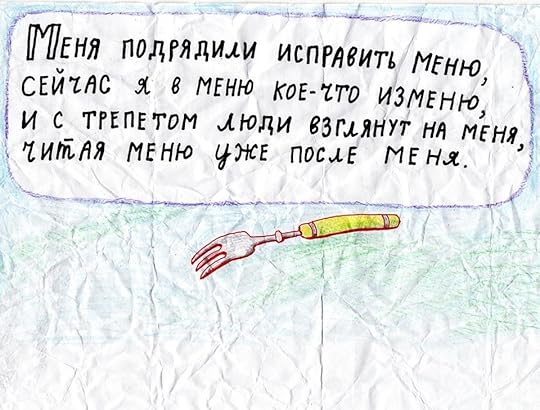 Меня подрядили исправить меню,
сейчас я в меню кое-что изменю,
и с трепетом люди взглянут на меня,
читая меню уже после меня.